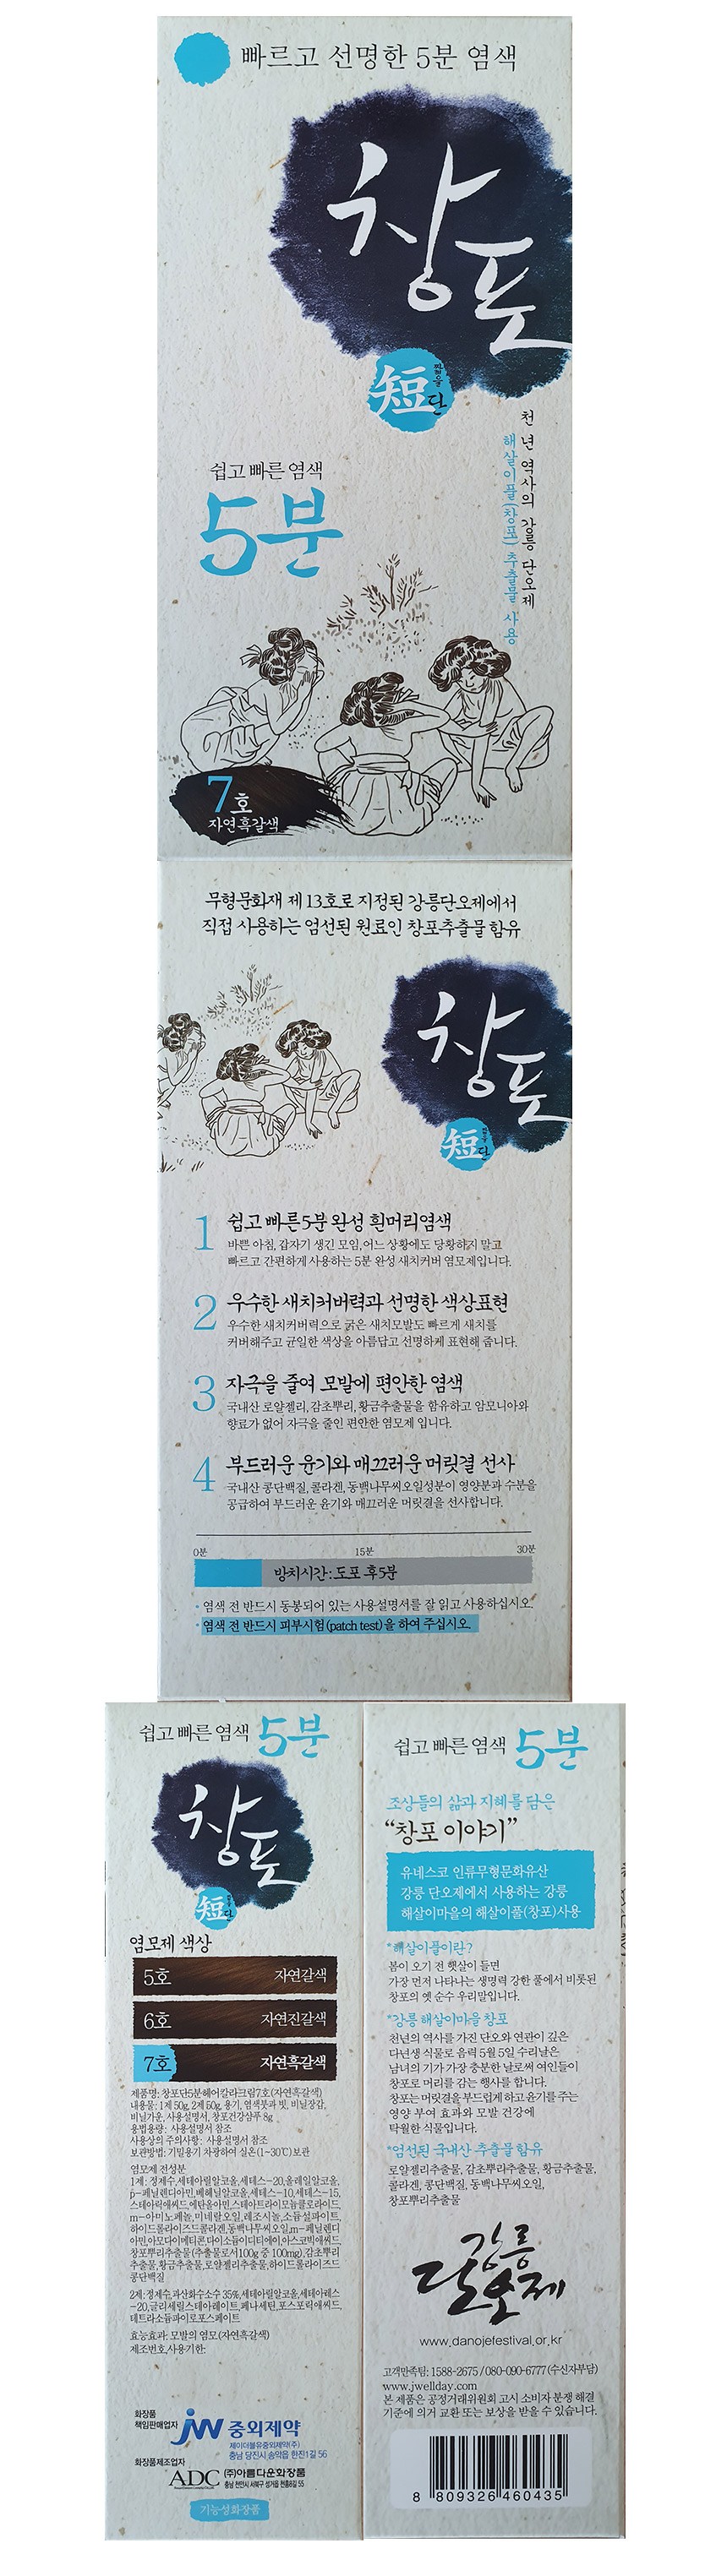 빠르고 선명한 5분 염색
창포
短
짧을
단
천 년 역사의 강릉 단오제
해살이풀(창포) 추출물 사용
쉽고 빠른 염색
5분
7호
자연흑갈색
무형문화재 제 13호로 지정된 강릉단오제에서
직접 사용하는 엄선된 원료인 창포추출물 함유
창포
短
짧을
단
1 쉽고 빠른 5분 완성 흰머리염색
바쁜 아침, 갑자기 생긴 모임, 어느 상황에도 당황하지 말고
빠르고 간편하게 사용하는 5분 완성 새치커버 염모제입니다.
2 우수한 새치커버력과 선명한 색상표현
우수한 새치커버력으로 굵은 새치모발도 빠르게 새치를
커버해주고 균일한 색상을 아름답고 선명하게 표현해 줍니다.
3 자극을 줄여 모발에 편안한 염색
국내산 로얄젤리, 감초뿌리, 황금추출물을 함유하고 암모니아와
향료가 없어 자극을 줄인 편안한 염모제 입니다.
4 부드러운 윤기와 매끄러운 머릿결 선사
국내산 콩단백질, 콜라겐, 동백나무씨오일성분이 영양분과 수분을
공급하여 부드러운 윤기와 매끄러운 머릿결을 선사합니다.
0분 15분 30분
방치시간 : 도포 후 5분
· 염색 전 반드시 동봉되어 있는 사용설명서를 잘 읽고 사용하십시오.
· 염색 전 반드시 피부시험(patch test)을 하여 주십시오.
쉽고 빠른 염색 5분
창포
短
단
염모제 색상
5호 자연갈색
6호 자연진갈색
7호 자연흑갈색
제품명: 창포단5분헤어칼라크림7호(자연흑갈색)
내용물: 1제 50g, 2제 50g, 용기, 염색붓과 빗, 비닐장갑,
비닐가운, 사용설명서, 창포건강샴푸 8g
용법용량: 사용설명서 참조
사용상의 주의사항: 사용설명서 참조
보관방법: 기밀용기 차광하여 실온(1~30℃)보관
염모제 전성분
1제: 정제수, 세테아릴알코올, 세테스-20, 올레일알코올,
p-페닐렌디아민, 베헤닐알코올, 세테스-10, 세테스-15,
스테아릭애씨드, 에탄올아민, 스테아트라이모늄클로라이드,
m-아미노페놀, 미네랄오일, 레조시놀, 소듐설파이트,
하이드롤라이즈드콜라겐, 동백나무씨오일, m-페닐렌디
아민, 아모다이메티콘, 다이소듐이디티에이, 아스코빅애씨드,
창포뿌리추출물(추출물로서100g 중 100mg), 감초뿌리
추출물, 황금추출물, 로얄젤리추출물, 하이드롤라이즈드
콩단백질
2제: 정제수, 과산화수소수 35%, 세테아릴알코올, 세테아레스
-20, 글리세릴스테아레이트, 페나세틴, 포스포릭애씨드,
테트라소듐파이로포스페이트
효능효과: 모발의 염모(자연흑갈색)
제조번호, 사용기한:
화장품
책임판매업자
JW 중외제약
제이더블유중외제약(주)
충남 당진시 송악읍 한진1길 56
화장품제조업자
ADC (주)아름다운화장품
충남 천안시 서북구 성거읍 천흥8길 55
기능성화장품
쉽고 빠른 염색 5분
조상들의 삶과 지혜를 담은
“창포 이야기”
유네스코 인류무형문화유산
강릉 단오제에서 사용하는 강릉
해살이마을의 해살이풀(창포)사용
*해살이풀이란?
봄이 오기 전 햇살이 들면
가장 먼저 나타나는 생명력 강한 풀에서 비롯된
창포의 옛 순수 우리말입니다.
*강릉 해살이마을 창포
천년의 역사를 가진 단오와 연관이 깊은
다년생 식물로 음력 5월 5일 수리날은
남녀의 기가 가장 충분한 날로써 여인들이
창포로 머리를 감는 행사를 합니다.
창포는 머릿결을 부드럽게 하고 윤기를 주는
영양 부여 효과와 모발 건강에
탁월한 식물입니다.
*엄선된 국내산 추출물 함유
로얄젤리추출물, 감초뿌리추출물, 황금추출물,
콜라겐, 콩단백질, 동백나무씨오일,
창포뿌리추출물
강릉
단오제
www.danojefestival.or.kr
고객만족팀: 1588-2675 / 080-090-6777 (수신자부담)
www.jwellday.com
본 제품은 공정거래위원회 고시 소비자 분쟁 해결
기준에 의거 교환 또는 보상을 받을 수 있습니다.
8 809326 460435